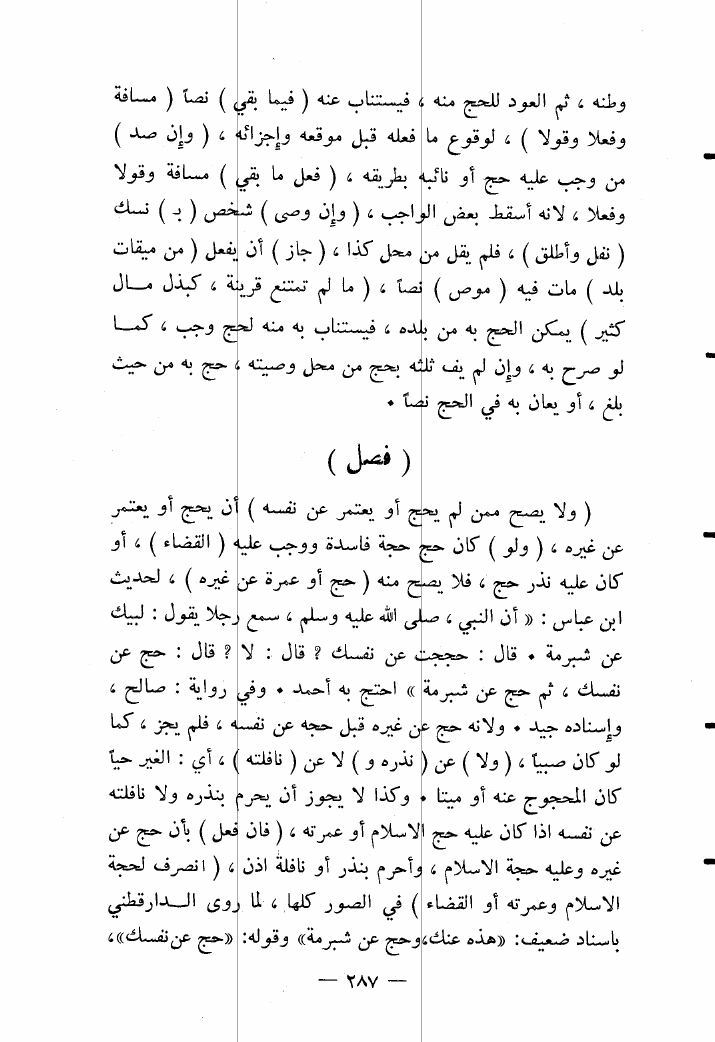 وطنه ، ثم العود للحج منه ، فيستناب عنه ( فيما بقي ) نصاً ( مسافة
وفعلا وقولا ) ، لوقوع ما فعله قبل موقعه وإجزائه ، ( وإن صد )
من وجب عليه حج أو نائبه بطريقه ، ( فعل ما بقي ) مسافة وقولا
وفعلا ، لانه أسقط بعض الواجب ، ( وإن وصى ) شخص ( بـ ) نسك
( نفل وأطلق ) ، فلم يقل من محل كذا ، ( جاز ) أن يفعل ( من ميقات
بلد ) مات فيه ( موص ) نصاً ، ( ما لم تمتنع قرينة ، كبذل مــال
كثير ) يمكن الحج به من بلده ، فيستناب به منه لحج وجب ، كمــا
لو صرح به ، وإن لم يف ثلثه بحج من محل وصيته ، حج به من حيث
بلغ ، أو يعان به في الحج نصاً ٠
( فصل )
( ولا يصح ممن لم يحج أو يعتمر عن نفسه ) أن يحج أو يعتمر
عن غيره ، ( ولو ) كان حج حجة فاسدة ووجب عليه ( القضاء ) ، أو
كان عليه نذر حج ، فلا يصح منه ( حج أو عمرة عن غيره ) ، لحديث
ابن عباس : « أن النبي ، صلى الله عليه وسلم ، سمع رجلا يقول : لبيك
عن شبرمة ٠ قال : حججت عن نفسك ? قال : لا ? قال : حج عن
نفسك ، ثم حج عن شبرمة » احتج به أحمد ٠ وفي رواية : صالح ،
وإسناده جيد ٠ ولانه حج عن غيره قبل حجه عن نفسه ، فلم يجز ، كما
لو كان صبياً ، ( ولا ) عن ( نذره و ) لا عن ( نافلته ) ، أي : الغير حياً
كان المحجوج عنه أو ميتا ٠ وكذا لا يجوز أن يحرم بنذره ولا نافلته
عن نفسه اذا كان عليه حج الاسلام أو عمرته ، ( فان فعل ) بأن حج عن
غيره وعليه حجة الاسلام ، وأحرم بنذر أو نافلة اذن ، ( انصرف لحجة
الاسلام وعمرته أو القضاء ) في الصور كلها ، لما روى الــدارقطني
باسناد ضعيف: «هذه عنك،وحج عن شبرمة» وقوله: «حج عن نفسك»،
— ٢٨٧ —